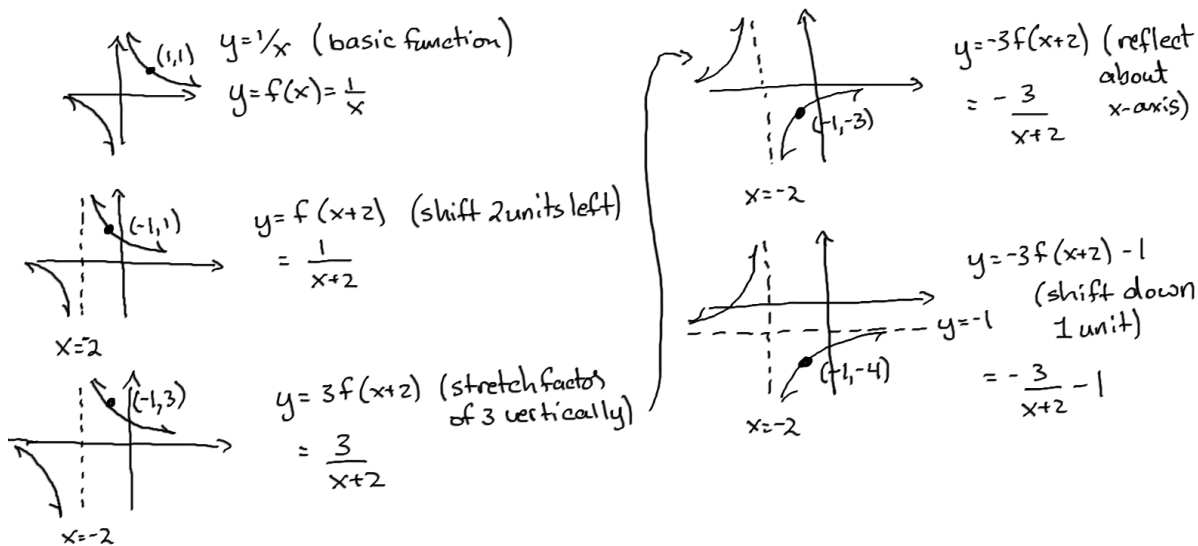 (1,1)
y=1/x (basic function)
y=f(x)=1/x
(-1,1)
y=f(x+2) (shift 2 units left)
= 1/(x+2)
x=-2
(-1,3)
y=3f(x+2) (stretch factor
of 3 vertically)
= 3/(x+2)
x=-2
y=-3f(x+2) (reflect
about
x-axis)
= - 3/(x+2)
(-1,-3)
x=-2
y=-3f(x+2)-1
(shift down
1 unit)
y=-1
(-1,-4)
= - 3/(x+2) - 1
x=-2